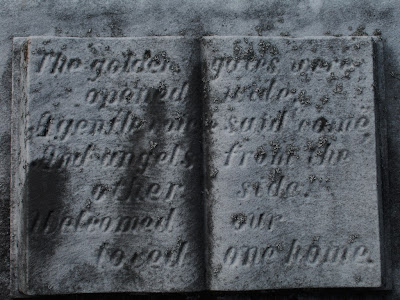 The golden gates were
opened wide,
A gentle voice said come
And angels, from the
other side,
Welcomed our
loved one home.